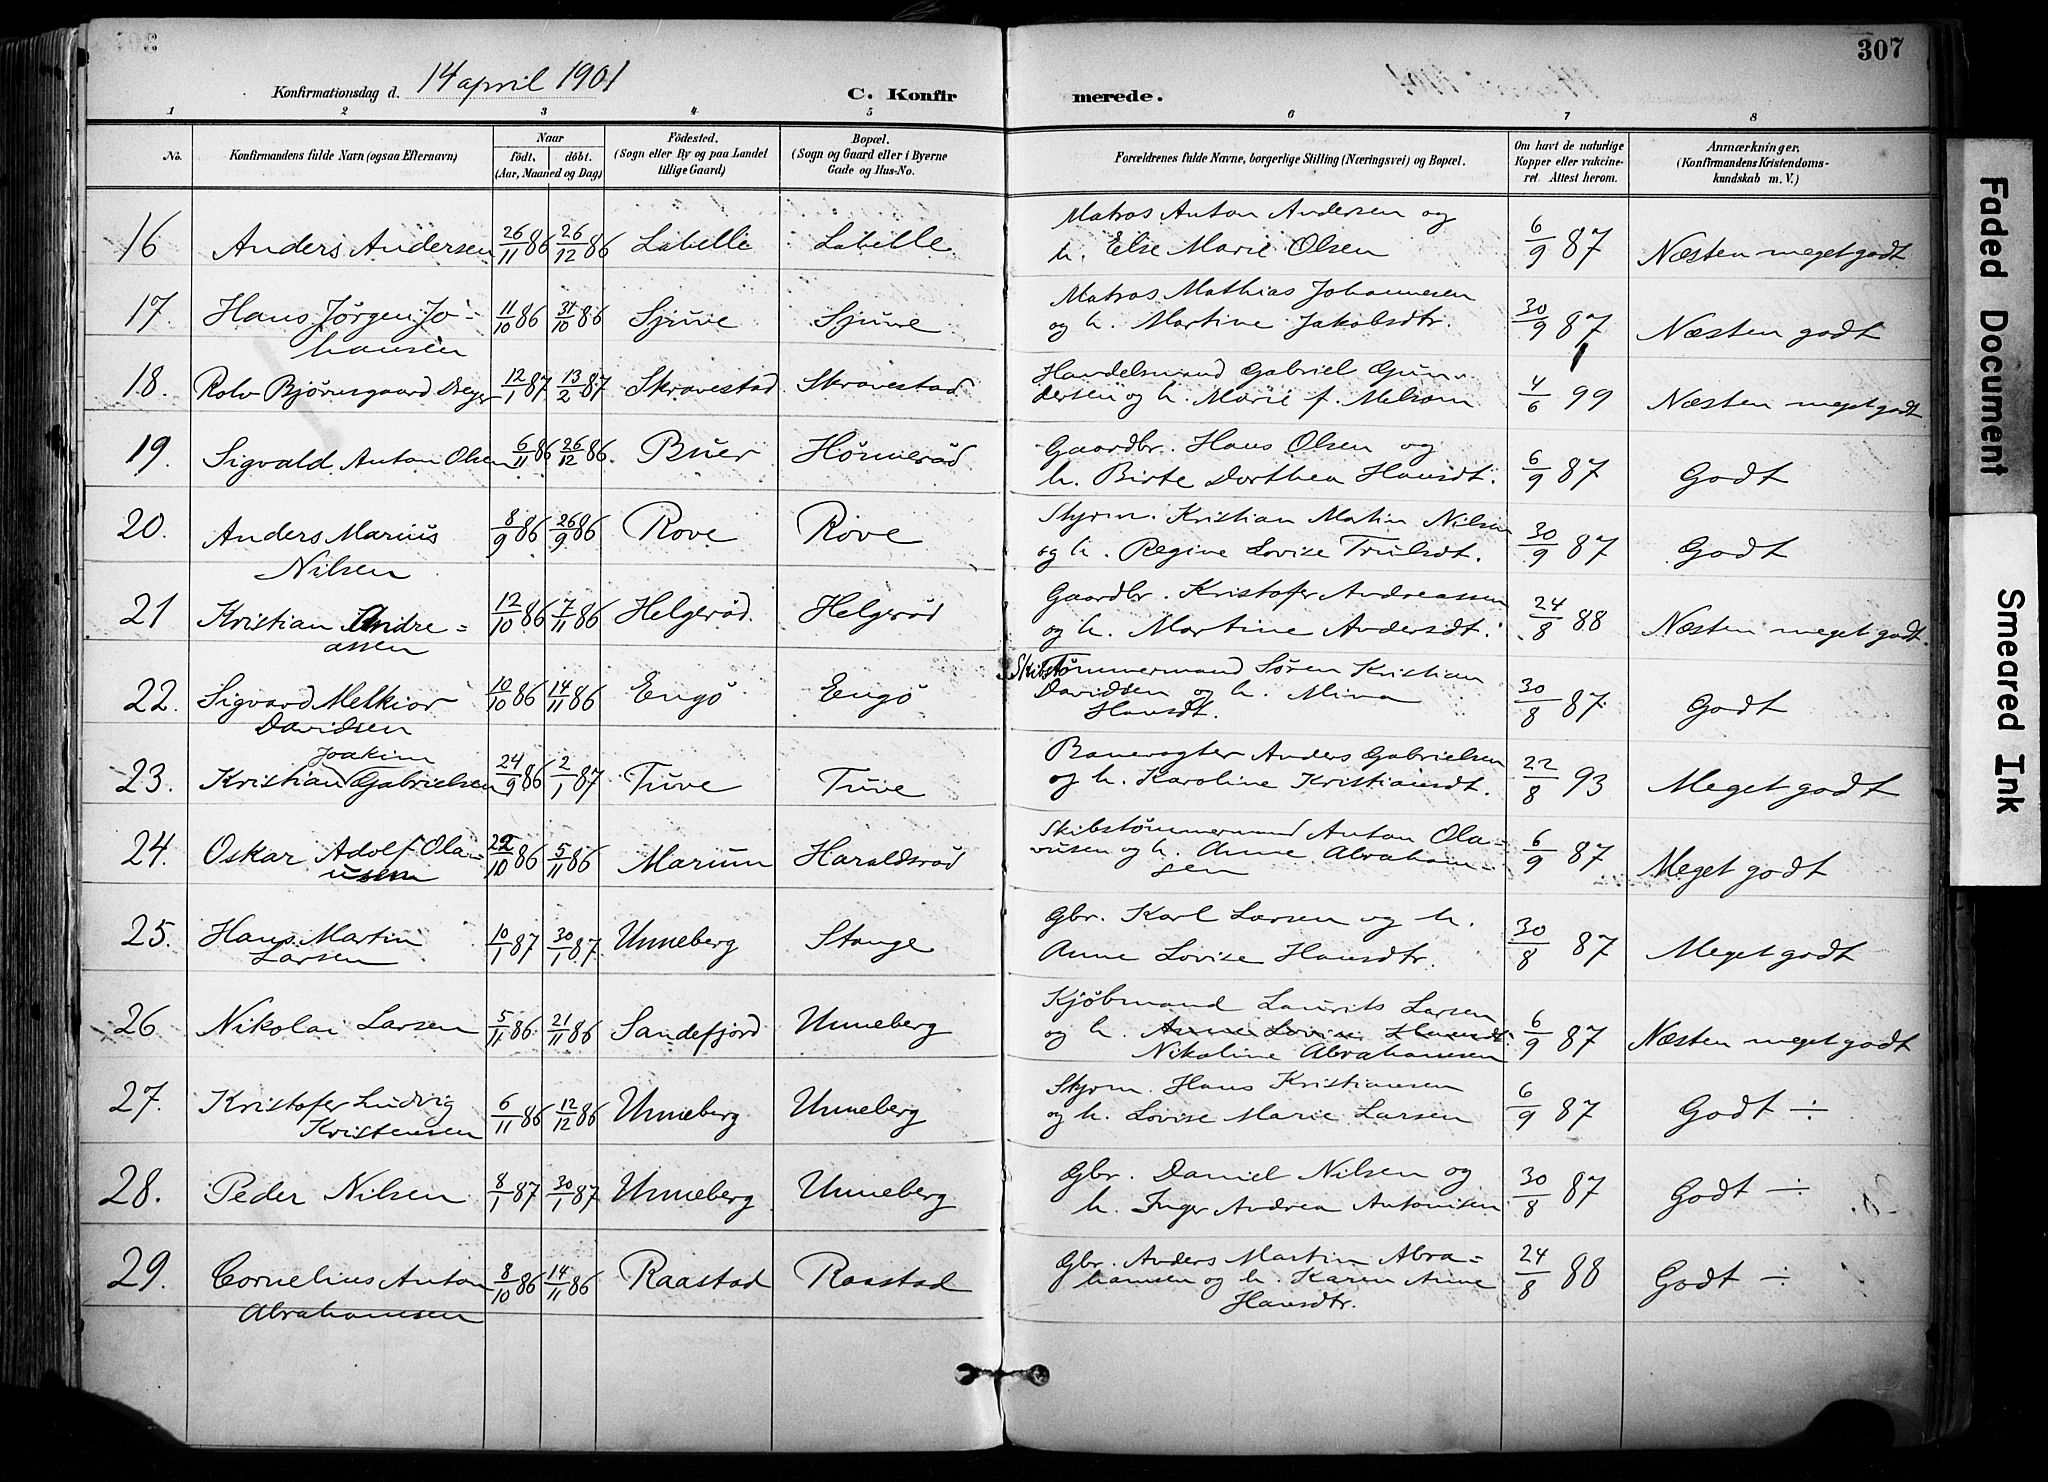 307
Konfirmationsdag d. 14 april 1901
C. Konfirmerede.
1 2 3 4 5 6 7 8
No.
Konfirmandens fulde Navn (ogsaa Efternavn)
Naar
født, døbt.
(Aar, Maaned og Dag)
Fødested.
(Sogn eller By og paa Landet
tillige Gaard)
Bopæl.
(Sogn og Gaard eller i Byerne
Gade og Hus-No.
Forældrenes fulde Navne, borgerlige Stilling (Næringsvei) og Bopæl.
Om havt de naturlige
Kopper eller vakcine-
ret. Attest herom.
Anmærkninger.
(Konfirmandens Kristendoms-
kundskab m. V.)
16 Anders Andersen 26/11 86 26/12 86 Labelle Labelle
Matros Anton Andersen og
h. Else Marie Olsen 6/9 87 Næsten meget godt
17. Hans Jørgen Jo-
hansen 11/10 86 31/10 86 Sjuve Sjuve
Matros Mathias Johannesen
og h. Martine Jakobsdtr. 30/9 87 Næsten godt
18. Rolv Bjørnsgaard 12/1 87 13/2 87 Skravestad Skravestad
Handelsmand Gabriel Gun-
dersen og h. Marie f. Melsom 4/6 99 Næsten meget godt
19. Sigvald Anton Olsen 6/11 86 26/12 86. Buer Hønnerød
Gaardbr. Hans Olsen og
h. Birte Dorthea Hansdt. 6/9 87 Godt
20. Anders Marius
Nilsen 8/9 86 26/9 86 Rove Rove
Styrm. Kristian Martin Nilsen
og h. Regine Lovise Trulsdt. 30/9 87 Godt
21 Kristian Andre-
assen 12/10 86 7/11 86 Helgerød. Helgerød
Gaardbr. Kristofer Andreassen
og h. Martine Andersdt. 24/8 88 Næsten meget godt
22. Sigvard Melkior
Davidsen 10/10 86 14/11 86 Engø Engø
Skibstømmermand Søren Kristian
Davidsen og h. Mina
Hansdt. 30/8 87 Godt
23. Joakim
Kristian Gabrielsen 24/9 86 2/1 87 Tuve Tuve
Banevogter Anders Gabrielsen
og h. Karoline Kristiansdt. 22/8 93 Meget godt
24. Oskar Adolf Ola-
usen 22/10 86 5/11 86 Marum Haraldsrød
Skibstømmermand Anton Ola-
vusen og h. Anne Abraham-
sen 6/9 87 Meget godt
25. Hans Martin
Larsen 10/1 87 30/1 87 Unneberg Stange
Gbr. Karl Larsen og h.
Anne Lovise Hansdtr. 30/8 87 Meget godt
26 Nikolai Larsen 5/11 86 21/11 86 Sandefjord Unneberg
Kjøbmand Laurits Larsen
og h. Anne Lovise Hansdt.
Nikoline Abrahamsen 6/9 87 Næsten meget godt
27. Kristofer Ludvig
Kristensen 6/11 86 12/12 86 Unneberg Unneberg
Styrm. Hans Kristiansen
og h. Lovise Marie Larsen 6/9 87 Godt ÷
28. Peder Nilsen 8/1 87 30/1 87 Unneberg Unneberg
Gbr. Daniel Nilsen og
h. Inger Andrea Antonisen 30/8 87 Godt ÷
29. Cornelius Anton
Abrahamsen 8/10 86 14/11 86 Raastad Raastad
Gbr. Anders Martin Abra-
hamsen og h. Karen Anne
Hansdtr. 24/8 88 Godt ÷
Faded Document
Smeared Ink